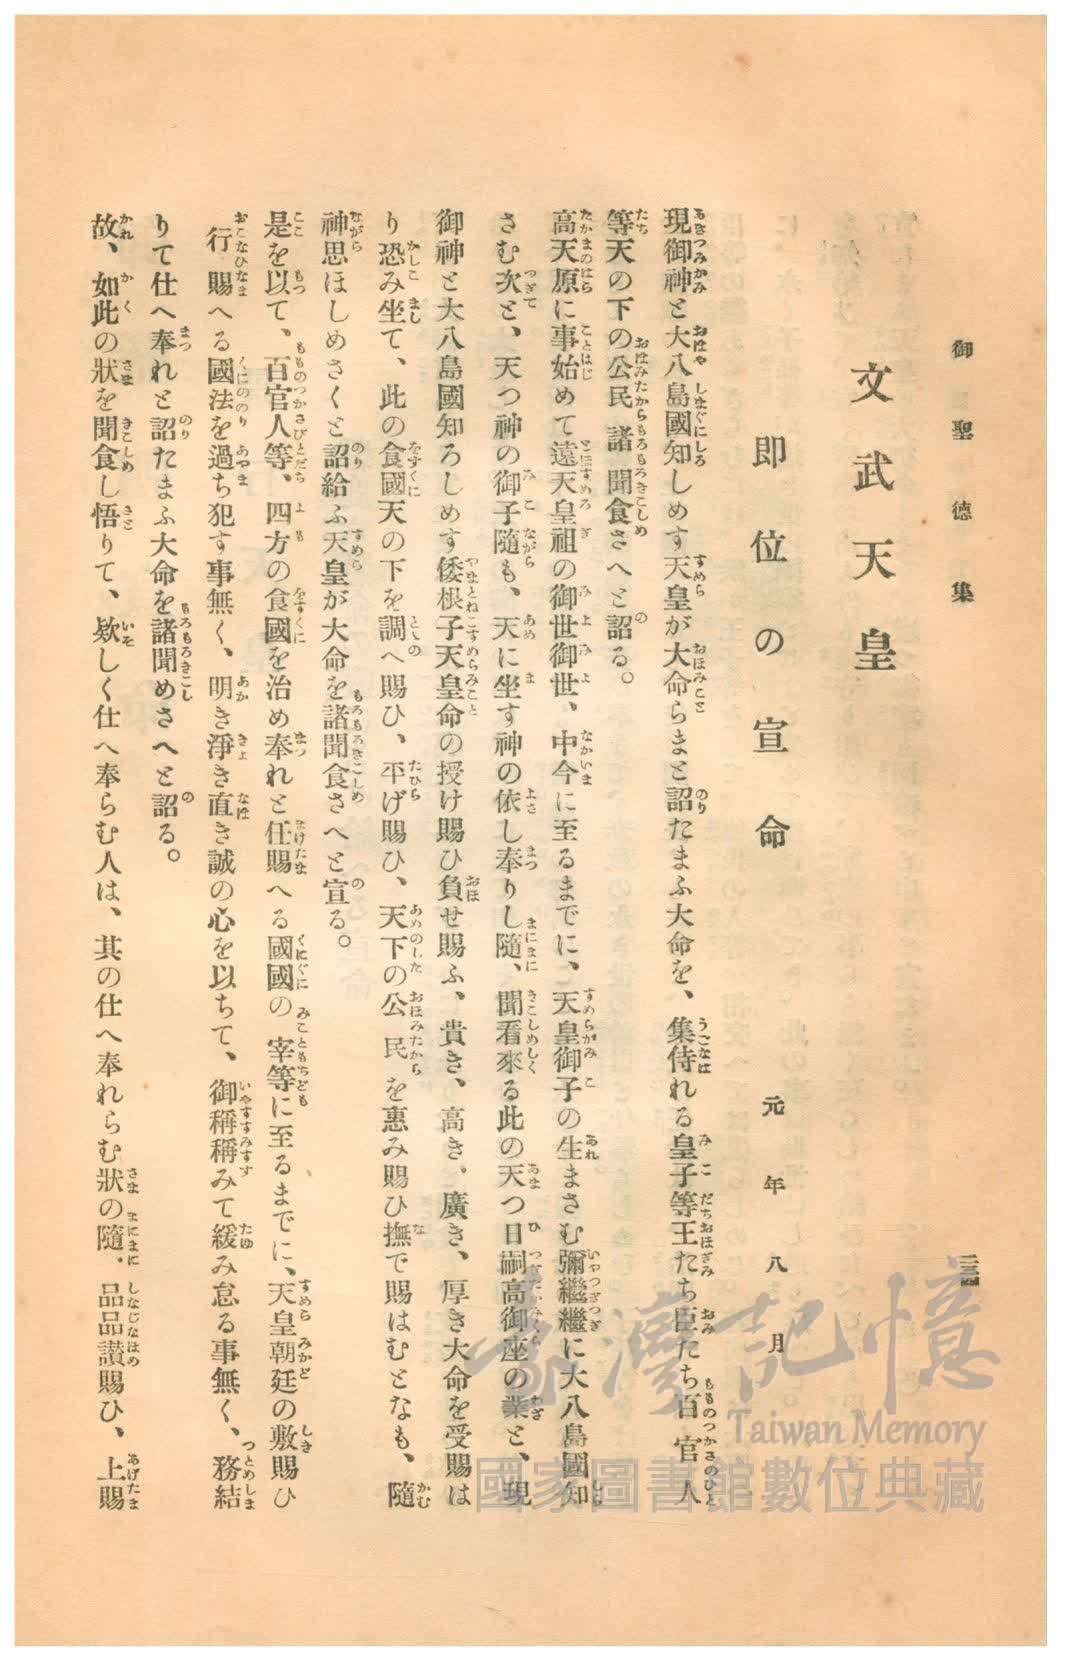 御聖德集
二三四
文武天皇
即位の宣命
元年八月
現御神と大八島國知しめす天皇が大命らまと詔たまふ大命を、集侍れる皇子等王たち臣たち百官人
等天の下の公民諸聞食さへと詔る。
高天原に事始めて遠天皇祖の御世御世、中今に至るまでに、天皇御子の生まさむ彌繼繼に大八島國知
さむ次と、天つ神の御子隨も、天に坐す神の依し奉りし隨、聞看來る此の天つ日嗣高御座の業と、現
御神と大八島國知ろしめす倭根子天皇命の授け賜ひ負せ賜ふ、貴き、高き、廣き、厚き大命を受賜は
り恐み坐て、此の食國天の下を調へ賜ひ、平げ賜ひ、天下の公民を惠み賜ひ撫で賜はむとなも、隨
神思ほしめさくと詔給ふ天皇が大命を諸聞食さへと宣る。
是を以て、百官人等、四方の食國を治め奉れと任賜へる國國の宰等に至るまでに、天皇朝廷の敷賜ひ
行賜へる國法を過ち犯す事無く、明き淨き直き誠の心を以ちて、御稱稱みて緩み怠る事無く、務結
りて仕へ奉れと詔たまふ大命を諸聞めさへと詔る。
故、如此の狀を聞食し悟りて、欵しく仕へ奉らむ人は、其の仕へ奉れらむ狀の隨、品品讃賜ひ、上賜
臺灣記憶
Taiwan Memory
國家圖書館數位典藏